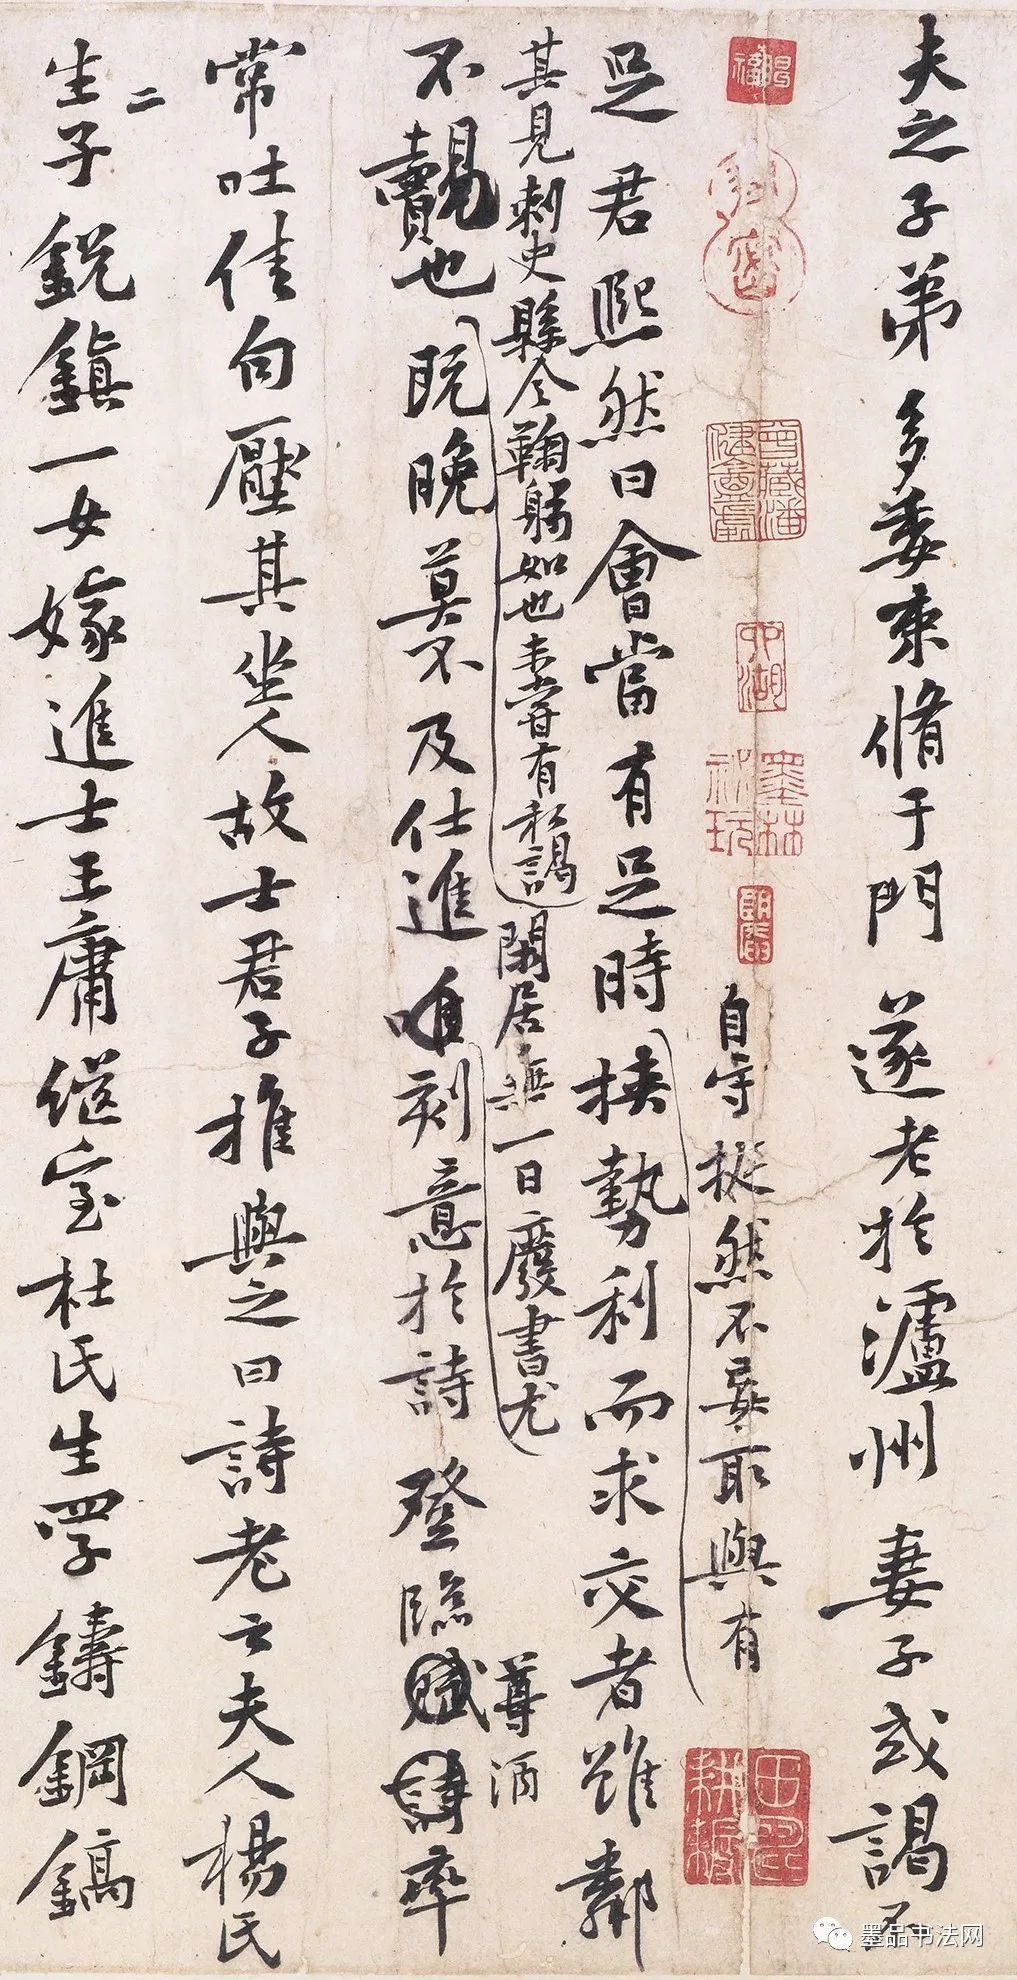 夫之子弟多委束脩于門遂老於瀘州妻子或謁不
自守挺然不妄取與有
足君熙然曰會當有足時挾勢利而求交者雖鄰
其見刺史縣令鞠躬如也未嘗有私謁閑居無一日廢書尤
尊酒
不覿也既晚莫不及仕進唯刻意於詩登臨賦詩率
常吐佳句壓其坐人故士君子推與之曰詩老云夫人楊氏
二
生子銳鎮一女嫁進士王庸継室杜氏生四子鑄鋼鎬
曾藏潘健盦處
墨林祕玩
田疇耕耨
墨品书法网